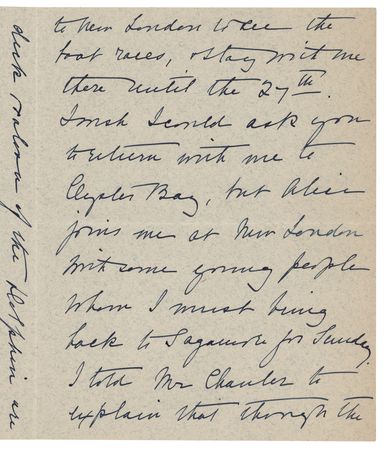 to New London to see the
boat races, & stay with me
there until the 27th.
I wish I could ask you
to return with me to
Oyster Bay, but Alice
joins me at New London
with some young people
whom I must bring
back to Sagamore for Sunday.
I told Mr Chanler to
explain that though the
deck saloon of the Dolphin are